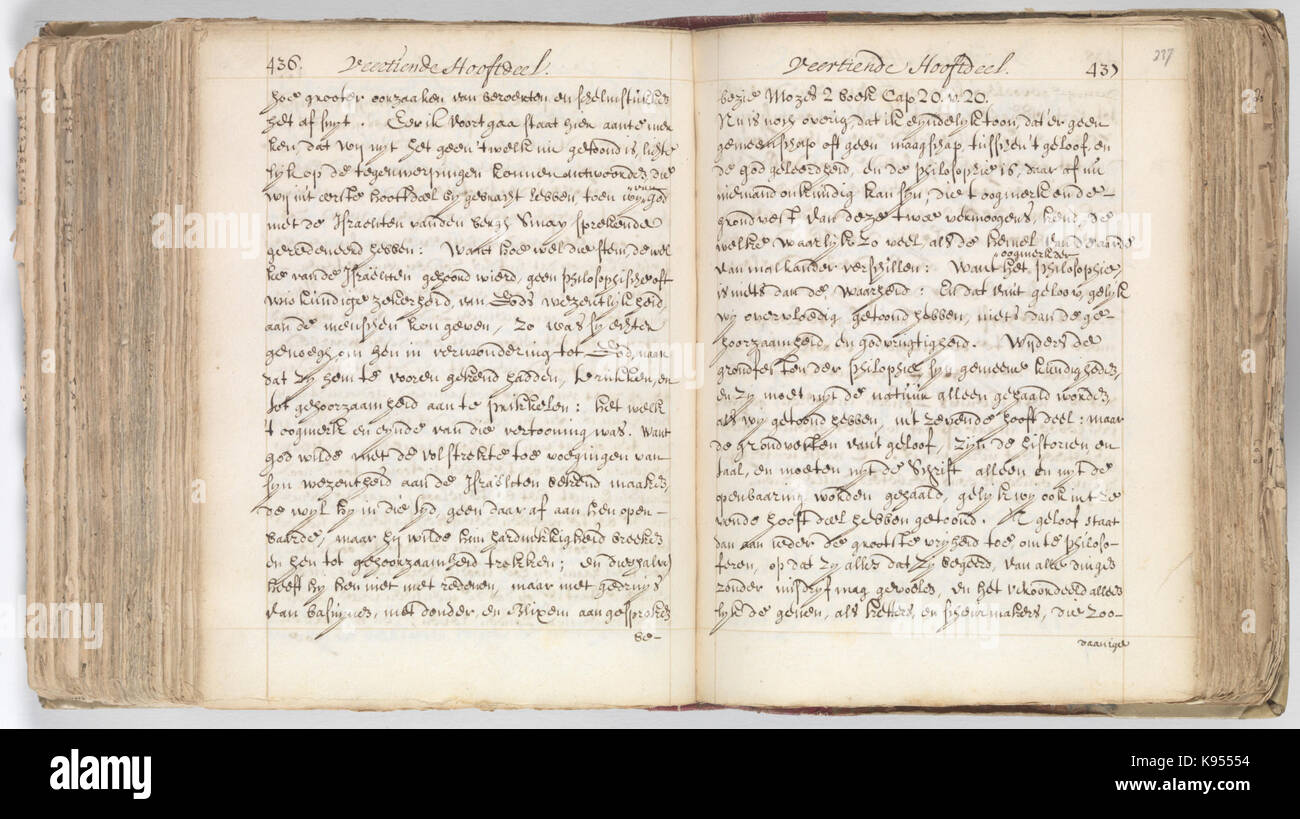 436. Veertiende Hooftdeel.
hoe grooter oorzaaken van beroerten en
het af snyt. Eer ik voortgaa staat hier aan te mer
ken, dat wij uyt het geen 't welk nu getoond is, licht
lyk op de tegenwerpingen konnen antwoorden, die
wij in't eerste hooftdeel by gebracht hebben, toen wij van God
met de Israelten van den Bergh Sinay sprekende
geredeneerd hebben: Want hoe wel die stem, de wel
ke van de Israëlcten gehoord wierd, geen philosophische oft
wiskundige zekerheid, van Gods wezentlykheid,
aan de menschen kon geven, zo was sy echter
genoegh, om hen in verwondering tot God, naar
dat zy hem te vooren gekend hadden, te rukken, en
tot gehoorzaamheid aan te prikkelen: het welk
't oogmerk en eynde van die vertooning was. Want
god wilde niet de volstrekte toe voegingen van
syn wezentheid aan de Israëlcten bekend maaken,
de wyl hy in die tyd, geen daar af aan hen open-
baarde, maar hij wilde hun hardnekkigheid breeken
en hen tot gehoorzaamheid trekken; en dieshalven
heeft hy hen niet met redenen, maar met geruys
van basuynes, met donder, en Blixem aangesproken
be-
237
Veertiende Hooftdeel. 437
bezie Mozes 2 boek Cap 20. v. 20.
Nu is noch overig dat ik eyndelyk toon, dat er geen
gemeenschap oft geen maagschap tusschen 't geloof, en
de god geleerdheid, en de philosophie is, daar af nu
niemand onkundig kan syn, die 't oogmerk en de
grondvest van deze twee vermoogens, kent, de
welke waarlyk zo veel, als de hemel van de aarde
oogmerk der
van malkander verschillen: Want het philosophie,
is niets dan de, waarheid: En dat van't geloov, gelyk
wy overvloedig getoond hebben, niets dan de ge-
hoorzaamheid, en godvrugtigheid. Wyders de
grondfesten der philophie syn gemeene kundigheden,
en zy moet uyt de natuur alleen gehaald worden,
als wy getoond hebben, in't zevende hooft deel: maar
de grondvesten van't geloof, zyn de historien, en
taal, en moeten uyt de Schrift alleen en uyt de
openbaaring worden gehaald, gelyk wy ook in't ze
vende hooft deel hebben getoond. 'T geloof staat
dan aan ieder de grootste vryheid toe, om te philoso-
feren, op dat zy alles dat zy begeerd, van alle dinges
zonder misdryf mag gevoelen, en het veroordeeld alleen
lyk de geenen, als ketters, en scheurmakers, die zoo-
daanige
alamy
Image ID: K95554
www.alamy.com